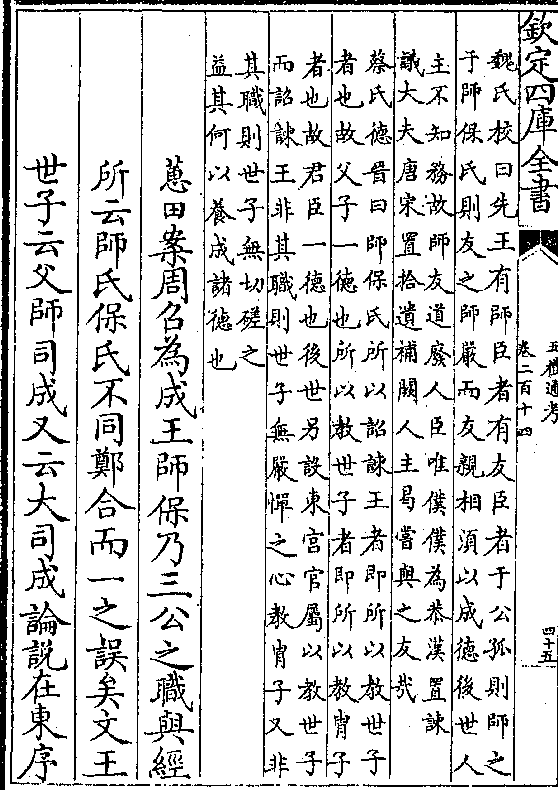 欽定四庫全書
五禮通考
卷二百十四
四十五
魏氏校曰先王有師臣者有友臣者于公孤則師之
于師保氏則友之師嚴而友親相須以成德後世人
主不知務故師友道廢人臣唯僕僕為恭漢置諫
議大夫唐宋置拾遺補闕人主曷嘗與之友哉
蔡氏德晉曰師保氏所以詔諫王者即所以教世子
者也故父子一德也所以教世子者即所以教胄子
者也故君臣一德也後世另設東宮官屬以教世子
而詔諫王非其職則世子無嚴憚之心教胄子又非
其職則世子無切磋之
益其何以養成諸德也
蕙田案周召為成王師保乃三公之職與經
所云師氏保氏不同鄭合而一之誤矣文王
世子云父師司成又云大司成論説在東序